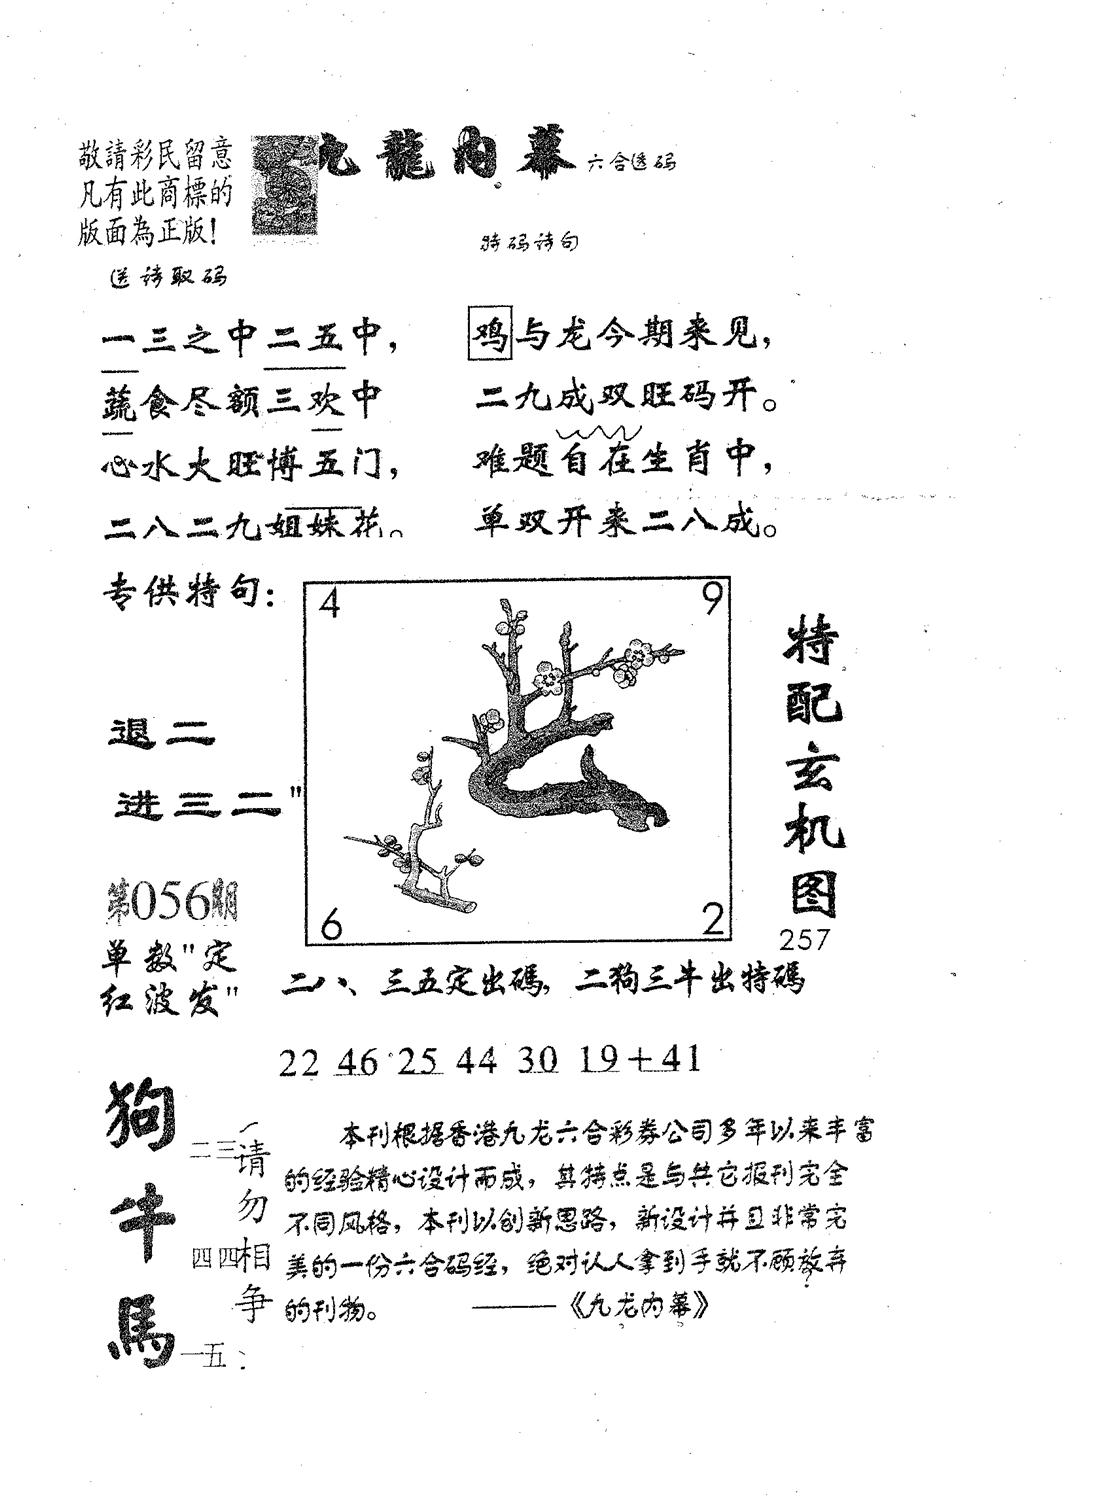 敬請彩民留意
凡有此商標的
版面為正版!
九龍內幕 六合透码
送诗取码
特码诗句
一三之中二五中，
蔬食尽额三欢中
心水火旺博五门，
二八二九姐妹花。
鸡与龙今期来见，
二九成双旺码开。
难题自在生肖中，
单双开来二八成。
专供特句：
退二
进三二"
4
9
6
2
特配玄机图
257
第056期
单数"定
红波发"
二八、三五定出碼，二狗三牛出特碼
22 46 25 44 30 19+41
狗 二三
牛 四四
馬 一五
请勿相争
本刊根据香港九龙六合彩券公司多年以来丰富
的经验精心设计而成，其特点是与其它报刊完全
不同风格，本刊以创新思路，新设计并且非常完
美的一份六合码经，绝对认人拿到手就不顾放弃
的刊物。 ——《九龙内幕》